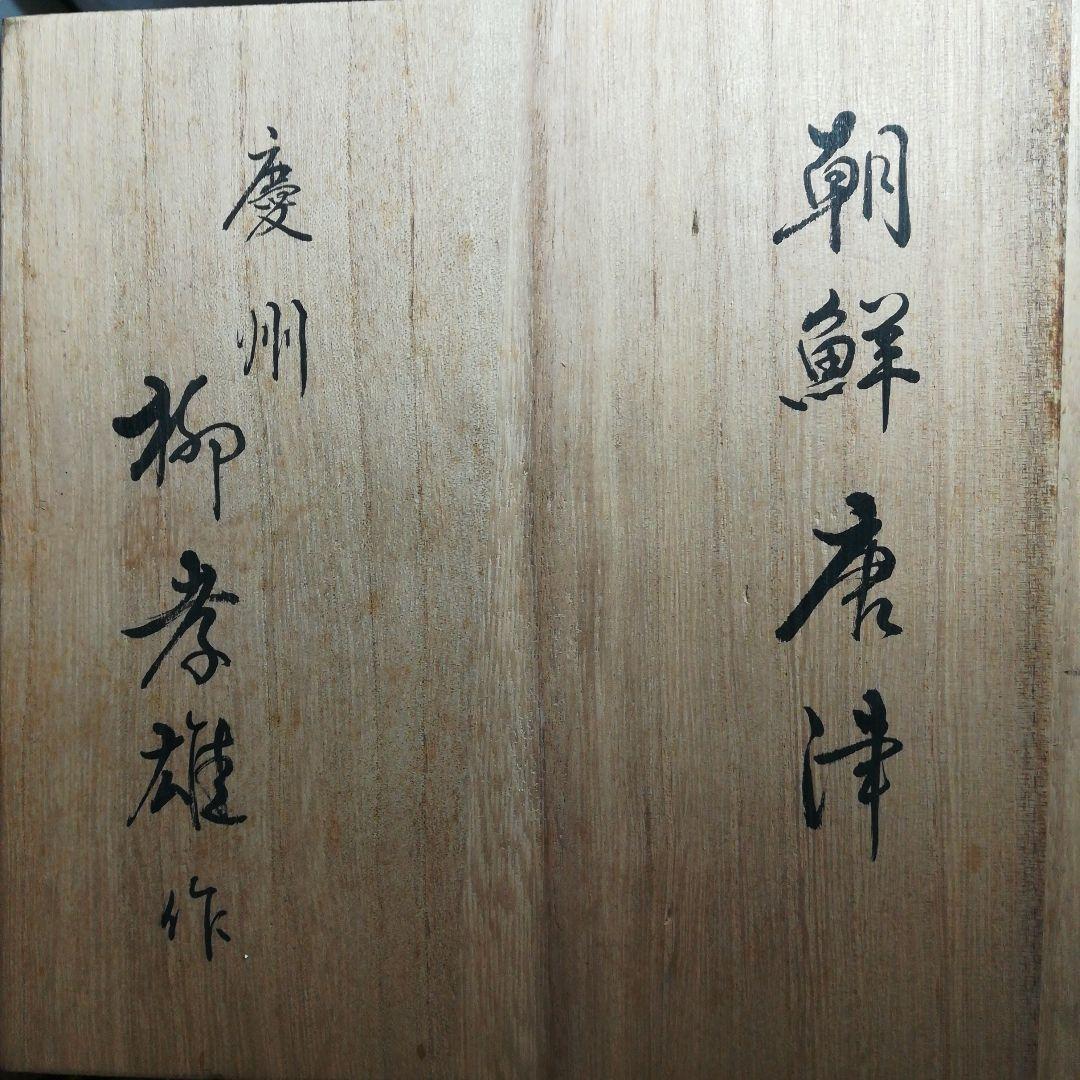 朝鮮唐津
慶州
柳孝雄作